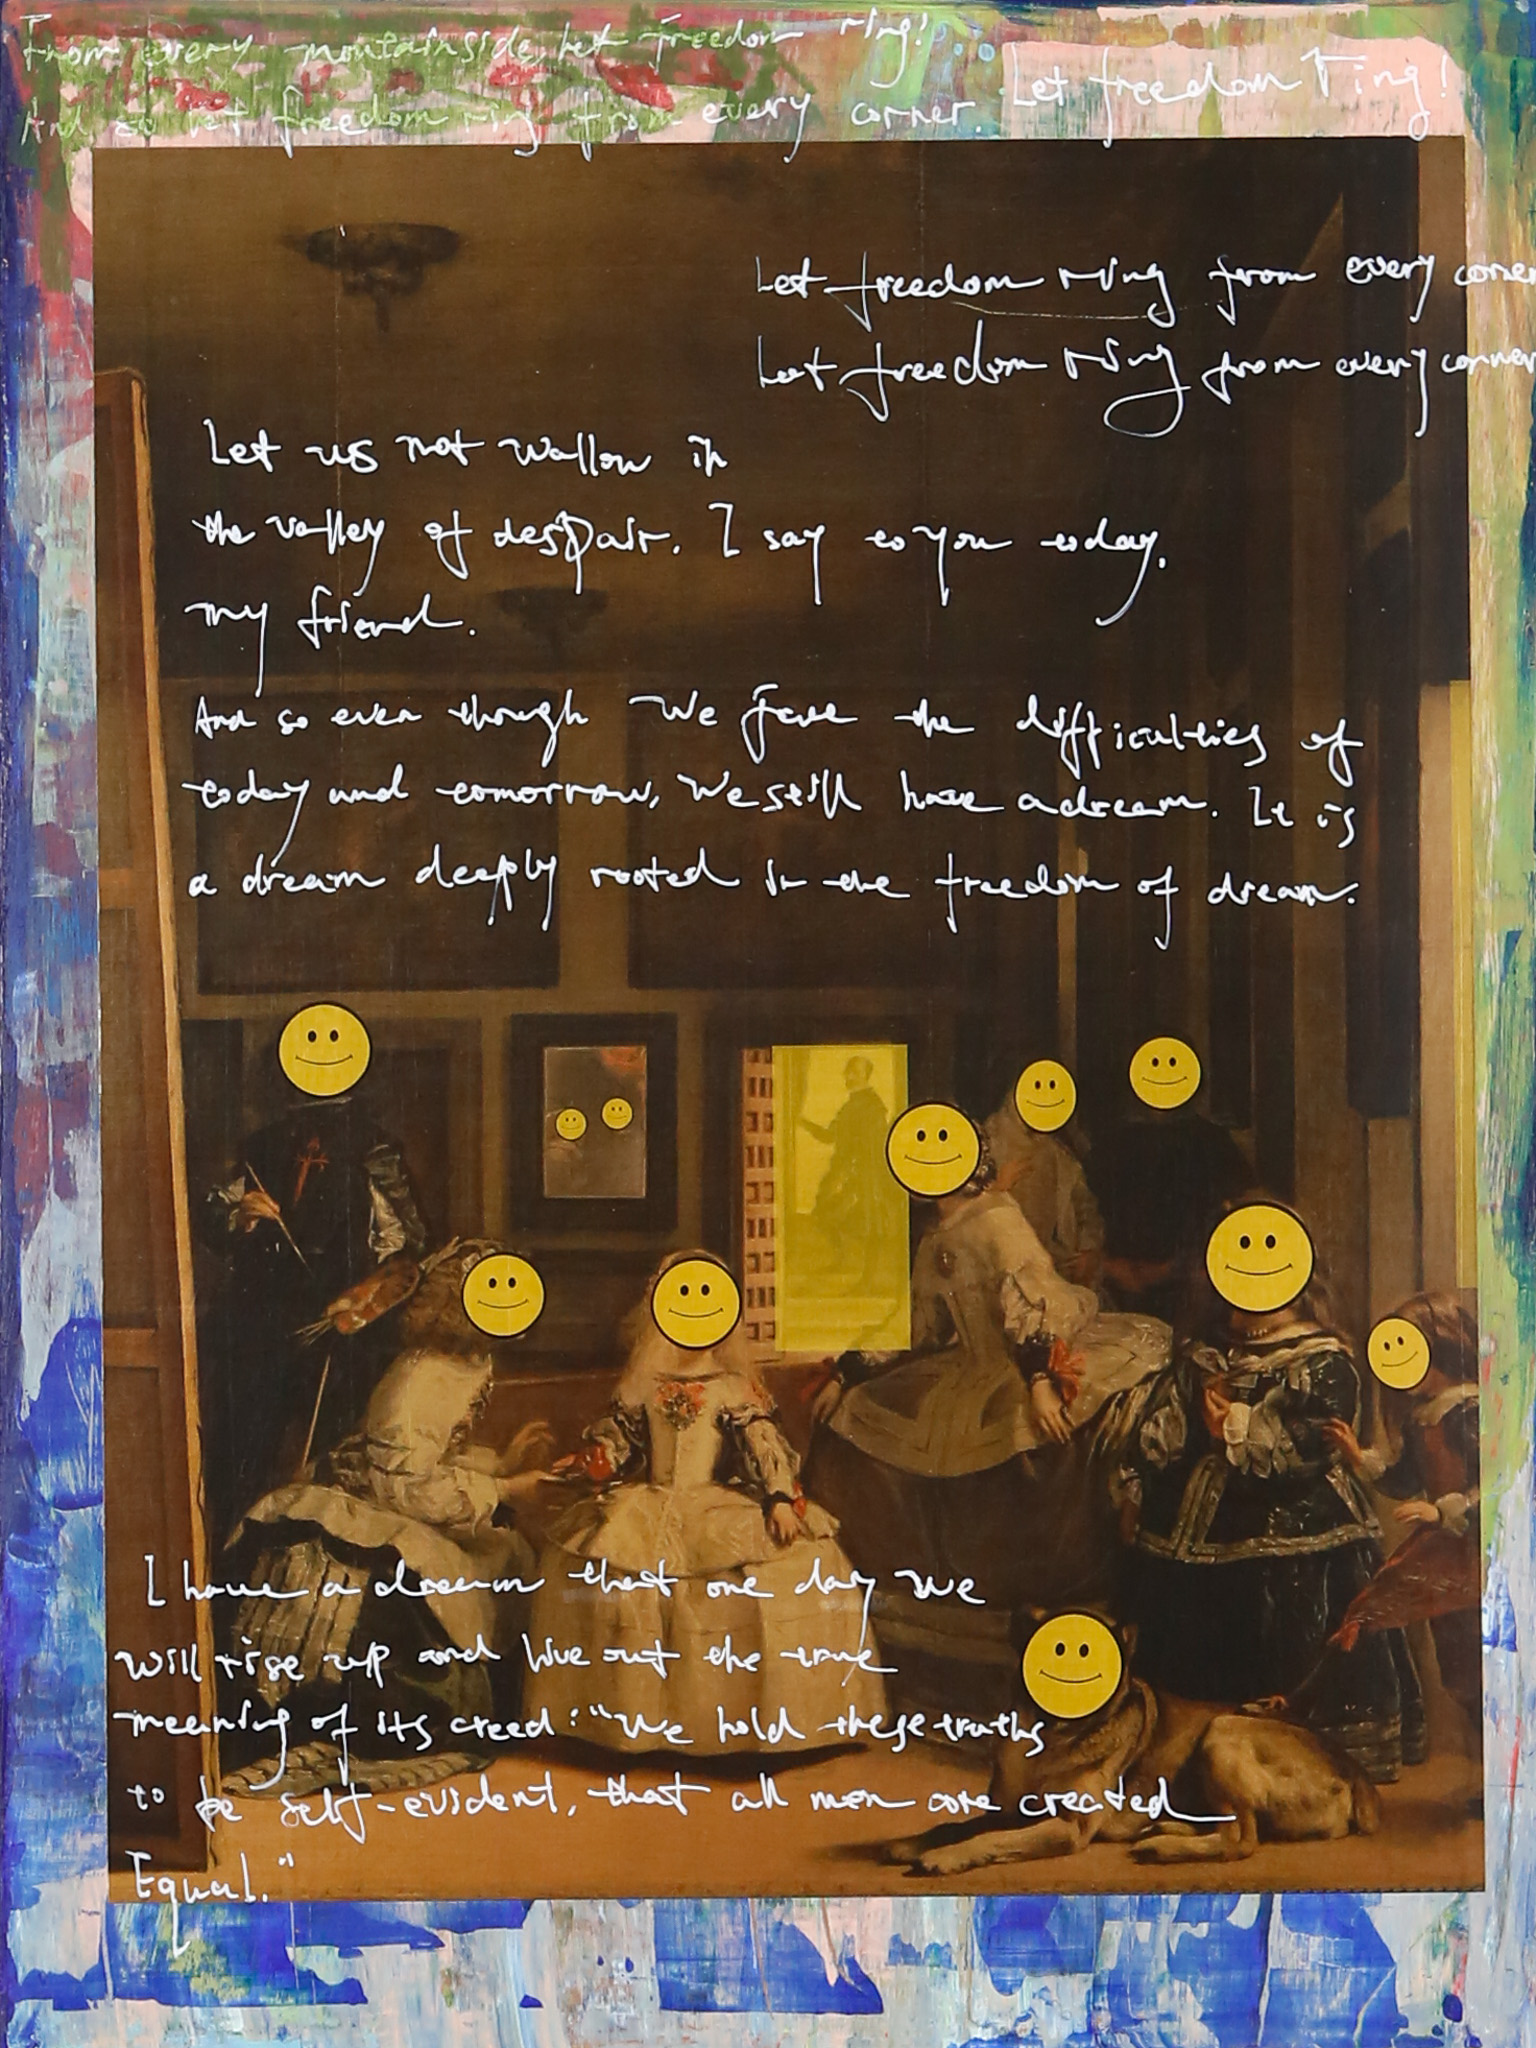 From every mountainside, let freedom ring!
And so let freedom ring from every corner. Let freedom ring!
Let freedom ring from every corner
Let freedom ring from every corner
Let us not wallow in
the valley of despair. I say to you today,
my friend.
And so even though we face the difficulties of
today and tomorrow, We still have a dream. It is
a dream deeply rooted in the freedom of dream.
I have a dream that one day we
will rise up and live out the true
meaning of its creed: "We hold these truths
to be self-evident, that all men are created
Equal."